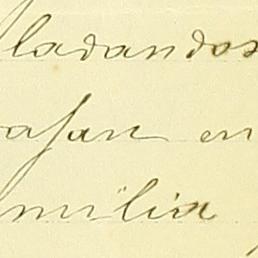 ladandos
asan en
milia